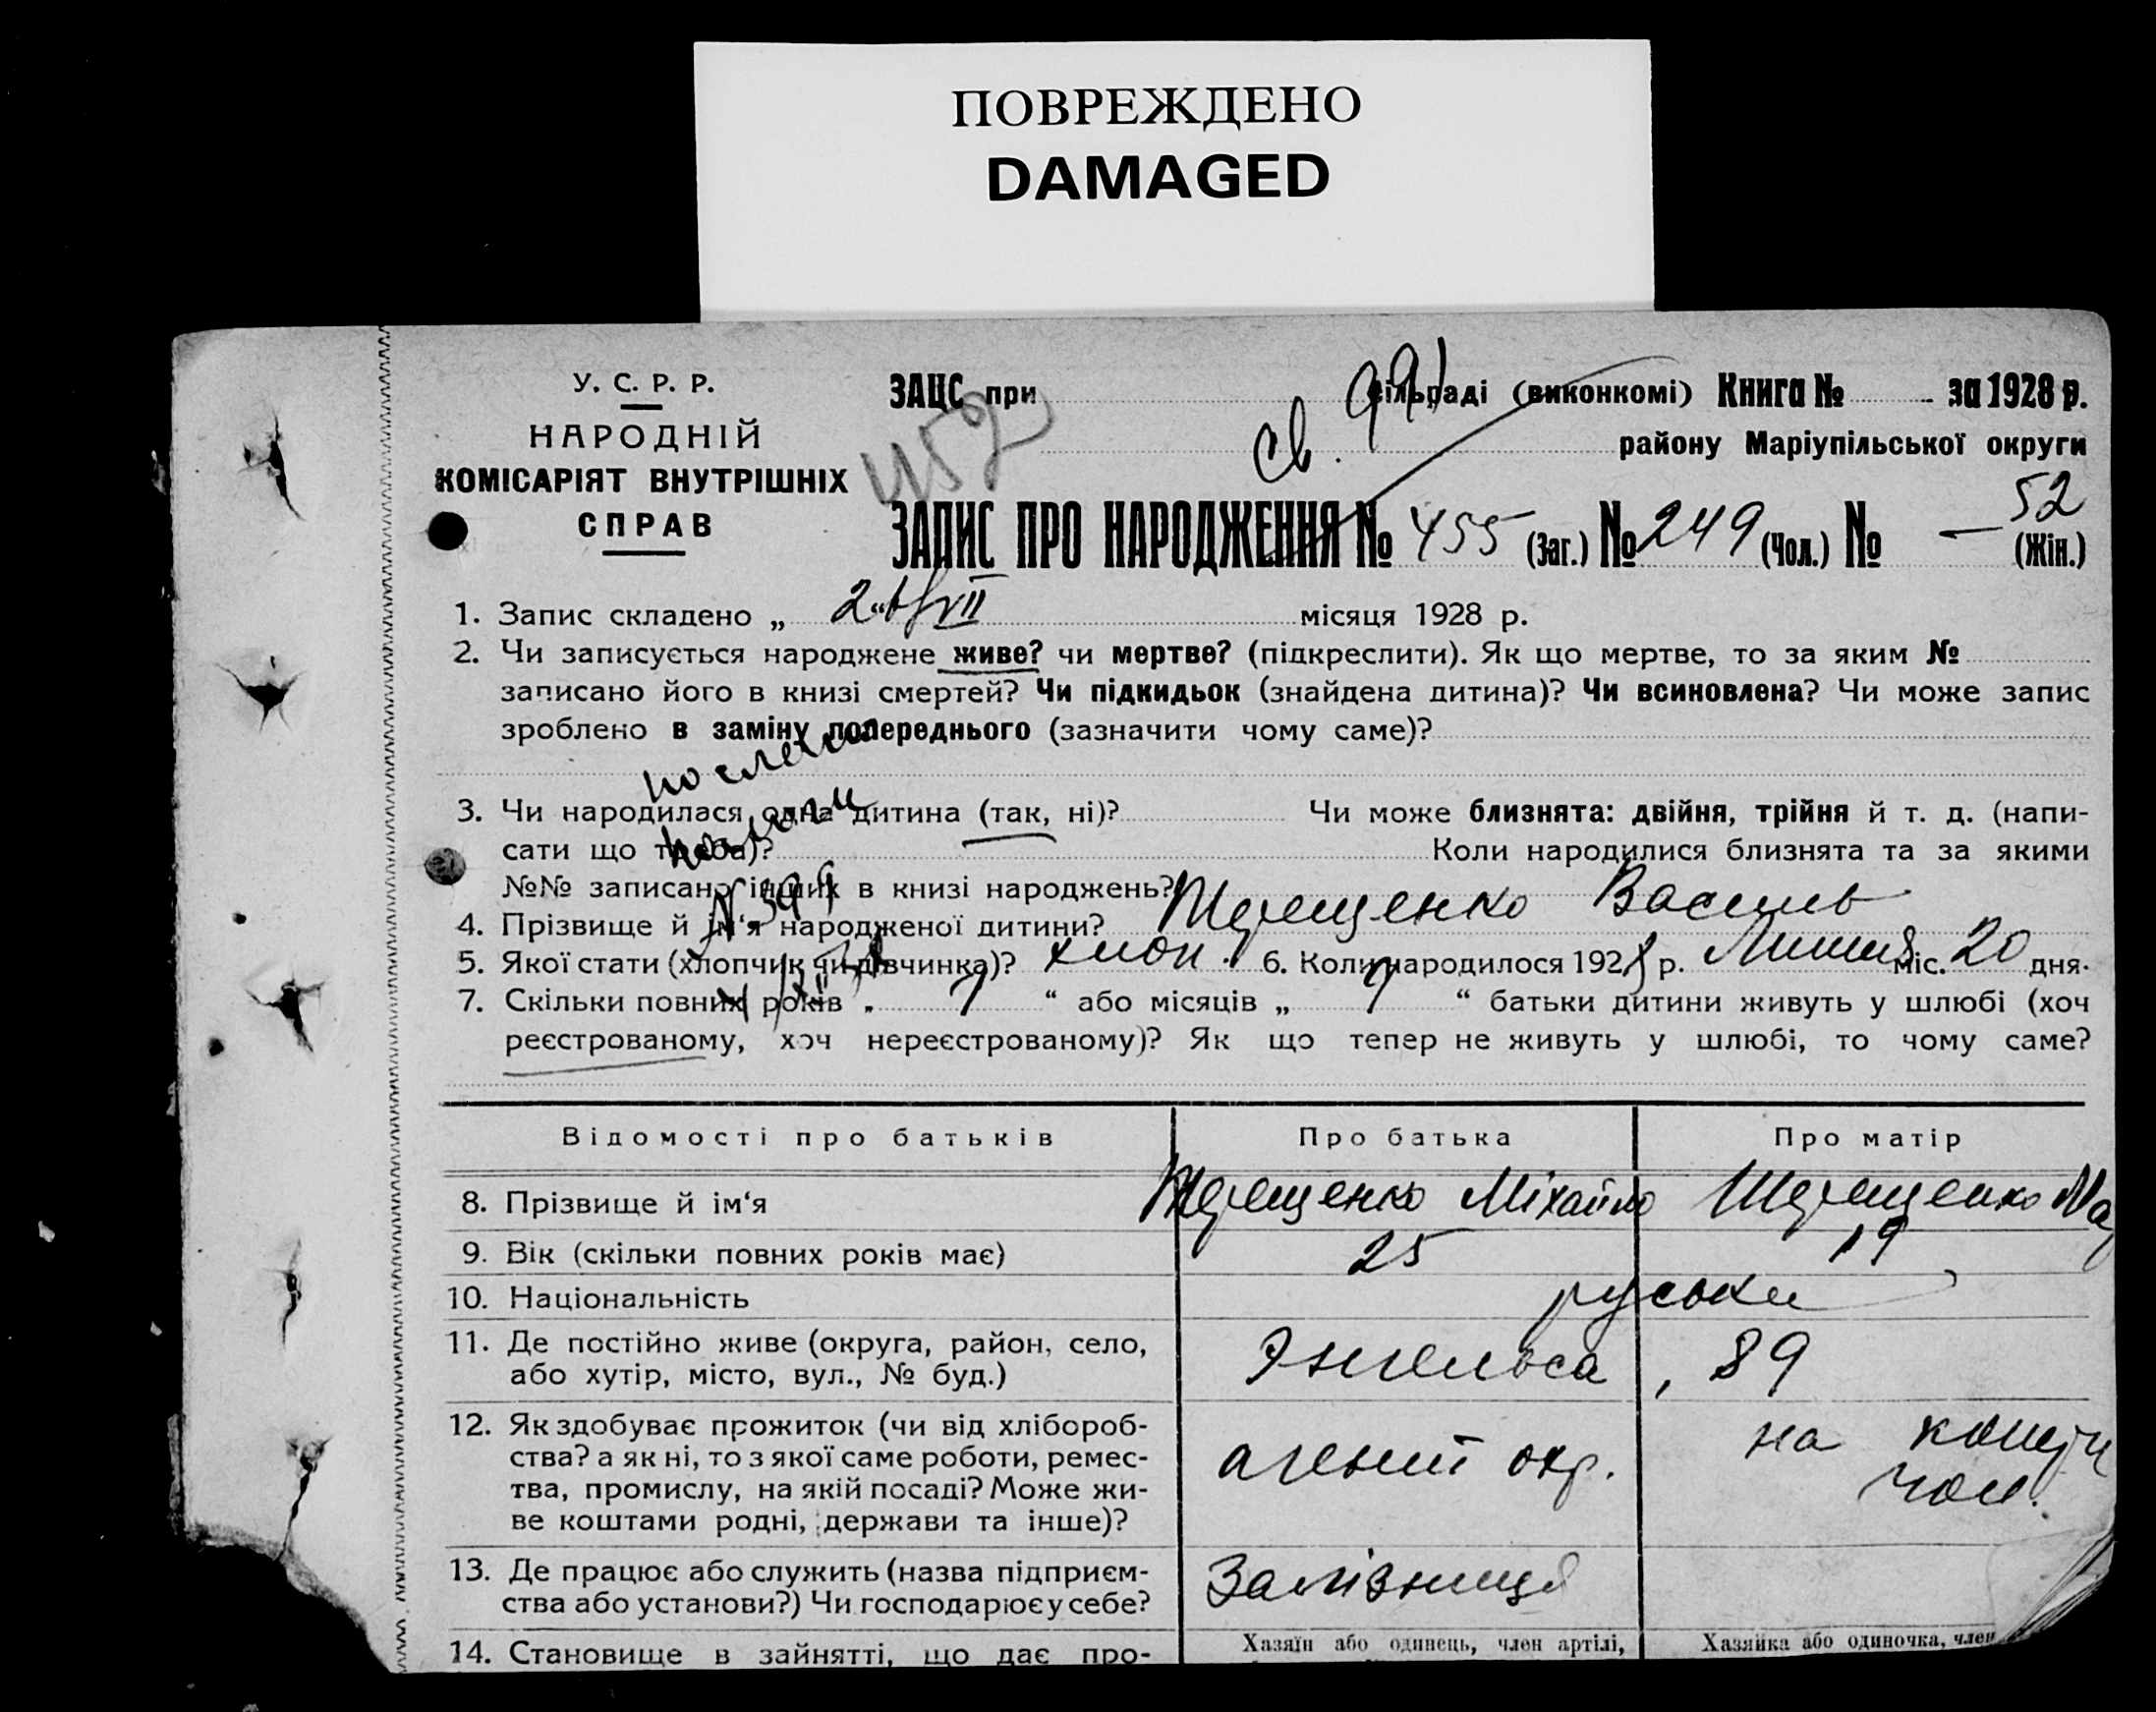 ПОВРЕЖДЕНО
DAMAGED
У. С. Р. Р.
НАРОДНІЙ
КОМІСАРІЯТ ВНУТРІШНІХ
СПРАВ
ЗАЦС при сільраді (виконкомі) Книга № за 1928 р.
452
св. 991
району Маріупільської округи
52
ЗАПИС ПРО НАРОДЖЕННЯ № 455 (Заг.) № 249 (Чол.) № — (Жін.)
1. Запис складено „ 26 “ VII місяця 1928 р.
2. Чи записується народжене живе? чи мертве? (підкреслити). Як що мертве, то за яким №
записано його в книзі смертей? Чи підкидьок (знайдена дитина)? Чи всиновлена? Чи може запис
зроблено в заміну попереднього (зазначити чому саме)?
3. Чи народилася одна дитина (так, ні)? Чи може близнята: двійня, трійня й т. д. (напи-
сати що треба)? Коли народилися близнята та за якими
№№ записано інших в книзі народжень?
4. Прізвище й ім‘я народженої дитини? Терещенко Василь
5. Якої стати (хлопчик чи дівчинка)? хлоп. 6. Коли народилося 1928 р. Липня міс. 20 дня.
7. Скільки повних років „ “ або місяців „ “ батьки дитини живуть у шлюбі (хоч
реєстрованому, хоч нереєстрованому)? Як що тепер не живуть у шлюбі, то чому саме?
Відомості про батьків Про батька Про матір
8. Прізвище й ім‘я Терещенко Міхайло Терещенко Ма
9. Вік (скільки повних років має) 25 19
10. Національність руськи
11. Де постійно живе (округа, район, село,
або хутір, місто, вул., № буд.) Энгельса, 89
12. Як здобуває прожиток (чи від хлібороб-
ства? а як ні, то з якої саме роботи, ремес-
тва, промислу, на якій посаді? Може жи-
ве коштами родні, держави та інше)? агент охр. на кошти
чол.
13. Де працює або служить (назва підприєм-
ства або установи?) Чи господарює у себе? Залізниця
14. Становище в зайнятті, що дає про- Хазяїн або одинець, член артілі, Хазяйка або одиночка, член